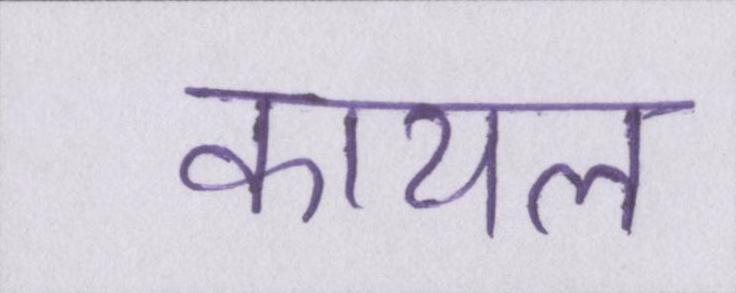 कायल